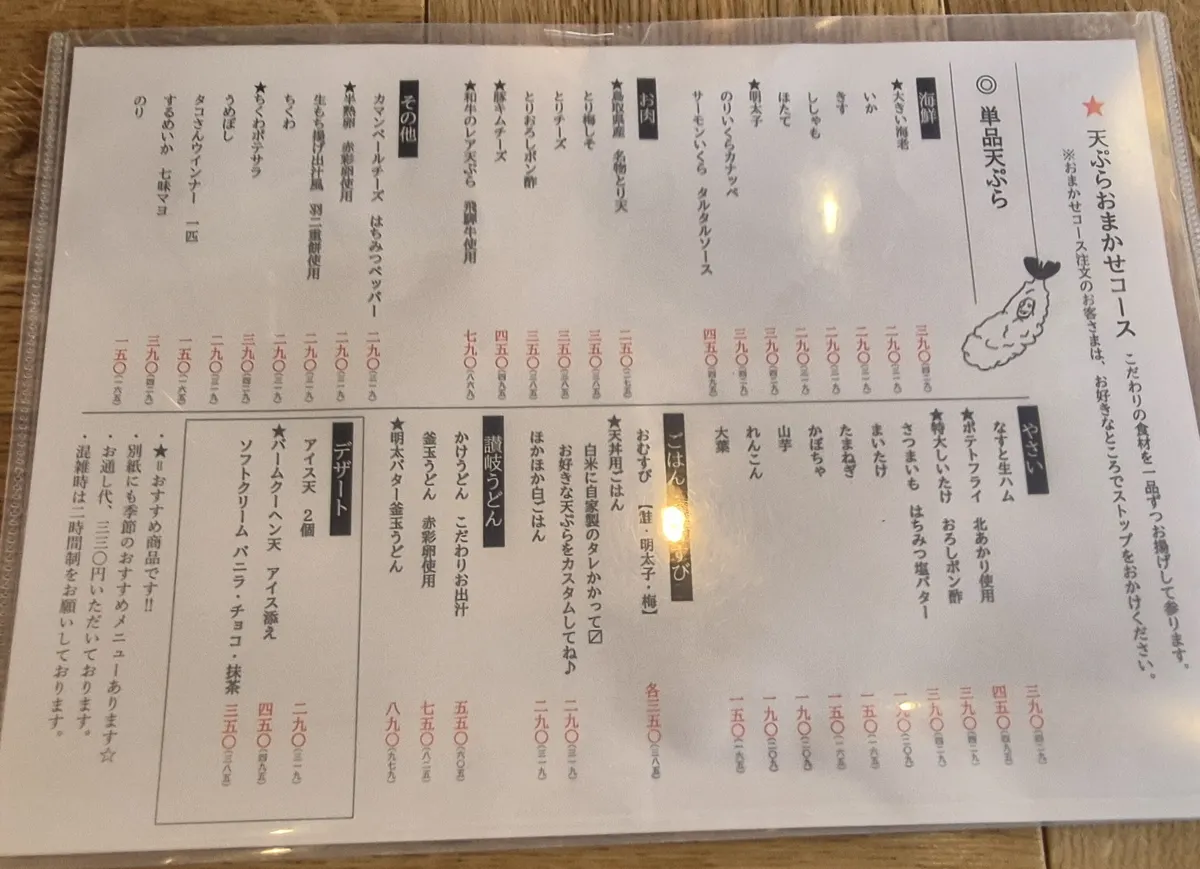 ★ 天ぷらおまかせコース こだわりの食材を一品ずつお揚げして参ります。
※おまかせコース注文のお客さまは、お好きなところでストップをおかけください。
◎ 単品天ぷら
海鮮
★大きい海老 三九〇(四二九)
いか 二九〇(三一九)
きす 二九〇(三一九)
ししゃも 二九〇(三一九)
ほたて 二九〇(三一九)
★明太子 三九〇(四二九)
のりいくらカナッペ 三九〇(四二九)
サーモンいくら タルタルソース 四五〇(四九五)
お肉
★鳥取県産 名物とり天 二五〇(二七五)
とり梅しそ 三五〇(三八五)
とりチーズ 三五〇(三八五)
とりおろしポン酢 三五〇(三八五)
★豚キムチーズ 四五〇(四九五)
★和牛のレア天ぷら 飛騨牛使用 七九〇(八六九)
その他
カマンベールチーズ はちみつペッパー 二九〇(三一九)
★半熟卵 赤彩卵使用 二九〇(三一九)
生もち揚げ出汁風 羽二重餅使用 二九〇(三一九)
ちくわ 二九〇(三一九)
★ちくわポテサラ 三九〇(四二九)
うめぼし 二九〇(三一九)
タコさんウインナー 一匹 一五〇(一六五)
するめいか 七味マヨ 三九〇(四二九)
のり 一五〇(一六五)
やさい
なすと生ハム 三九〇(四二九)
★ポテトフライ 北あかり使用 四五〇(四九五)
★特大しいたけ おろしポン酢 三九〇(四二九)
さつまいも はちみつ塩バター 三九〇(四二九)
まいたけ 一九〇(二〇九)
たまねぎ 一五〇(一六五)
かぼちゃ 一五〇(一六五)
山芋 一九〇(二〇九)
れんこん 一九〇(二〇九)
大葉 一五〇(一六五)
ごはん すび
おむすび 【鮭・明太子・梅】 各三五〇(三八五)
★天丼用ごはん
白米に自家製のタレかかって〼
お好きな天ぷらをカスタムしてね♪ 二九〇(三一九)
ほかほか白ごはん 二九〇(三一九)
讃岐うどん
かけうどん こだわりお出汁 五五〇(六〇五)
釜玉うどん 赤彩卵使用 七五〇(八二五)
★明太バター釜玉うどん 八九〇(九七九)
デザート
アイス天 2個 二九〇(三一九)
★バームクーヘン天 アイス添え 四五〇(四九五)
ソフトクリーム バニラ・チョコ・抹茶 三五〇(三八五)
・★=おすすめ商品です!!
・別紙にも季節のおすすめメニューあります☆
・お通し代、三三〇円いただいております。
・混雑時は二時間制をお願いしております。